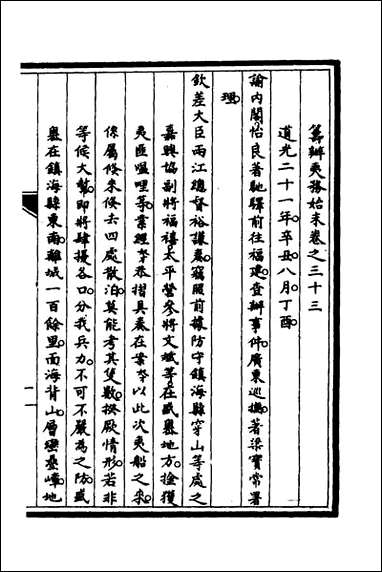 籌辦夷務始末卷之三十三
道光二十一年辛丑八月丁酉
諭內閣怡良著馳驛前往福建查辦事件廣東巡撫著梁寶常署
理
欽差大臣兩江總督裕謙奏竊照前據防守鎮海縣穿山等處之
嘉興協副將福禧太平營參將文斌等在盛嶴地方搶獲
夷匪嗢哩等業經恭摺具奏在案以此次夷船之來
條屬倏來倏去四處散泊莫能考其隻數揆厥情形若非
等候大幫即將肆擾各口分我兵力不可不嚴為之防盛
嶴在鎮海縣東南離城一百餘里面海背山層巒疊嶂地